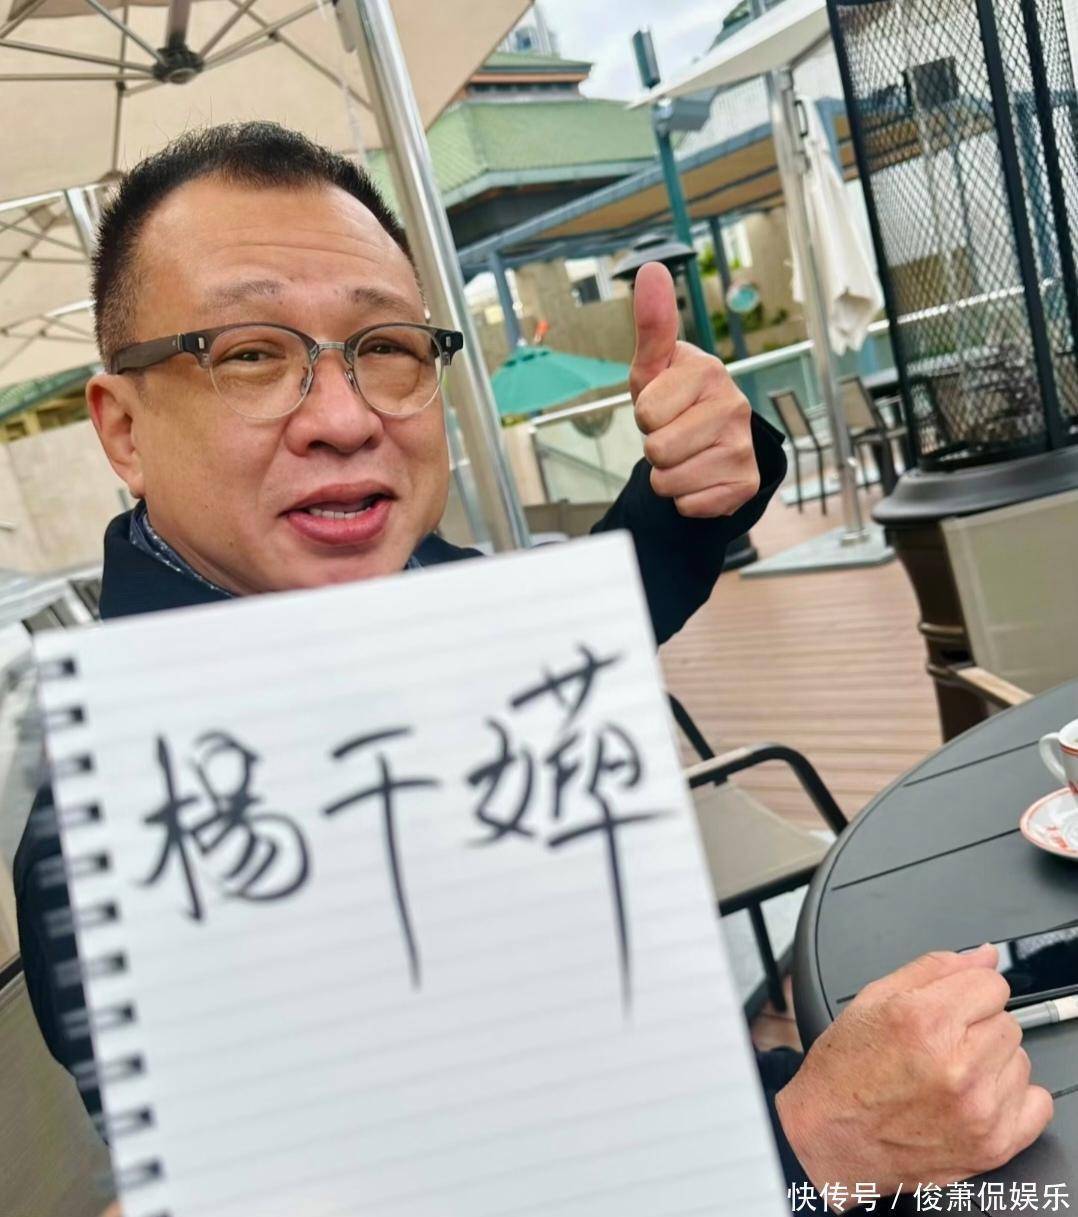 楊千嬅
快传号 / 俊萧侃娱乐